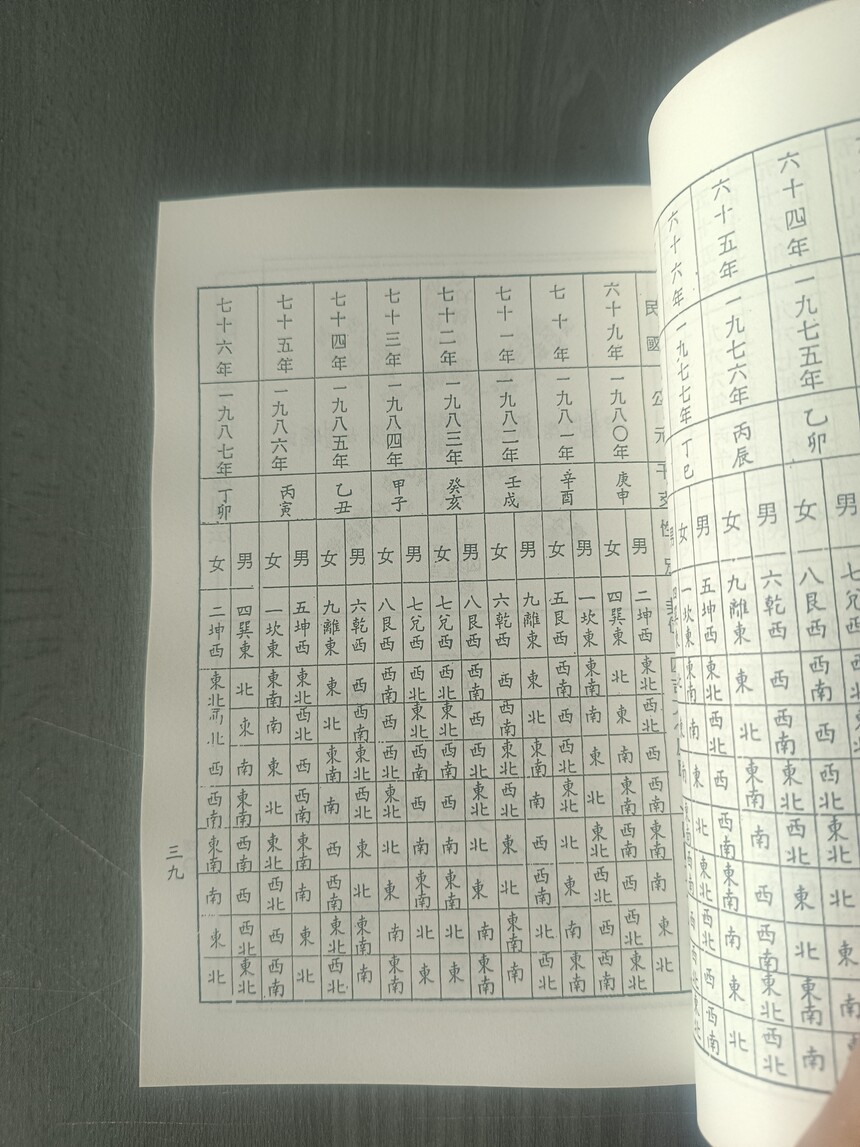 六十四年
一九七五年
乙卯
男
女 八艮西 西南 西 西北 東北 北 東 南
六十五年
一九七六年
丙辰
男 六乾西 西 西南 東北 西北 東 北 東南 南
女 九離東 東 北 東南 南 西 西南 東北 西北
六十六年
一九七七年
丁巳
男 五坤西 東北 西北 西 西南 東南 南 東 北
女 一坎東 東南 南 東 北 東北 西北 西 西南
民國
公元
干支
六十九年
一九八〇年
庚申
男 二坤西 東北 西北 西 西南 東南 南 東 北
女 四巽東 北 東 南 東南 西南 西 西北 東北
七十年
一九八一年
辛酉
男 一坎東 東南 南 東 北 東北 西北 西 西南
女 五艮西 西南 西 西北 東北 北 東 南 東南
七十一年
一九八二年
壬戌
男 九離東 東 北 東南 南 西 西南 北 西北
女 六乾西 西 西南 東北 西北 東 北 東南 南
七十二年
一九八三年
癸亥
男 八艮西 西南 西 西北 東北 北 東 南 東南
女 七兌西 西北 東北 西南 西 南 東南 北 東
七十三年
一九八四年
甲子
男 七兌西 西北 東北 西南 西 南 東南 北 東
女 八艮西 西南 西 西北 東北 北 東 南 東南
七十四年
一九八五年
乙丑
男 六乾西 西 西南 東北 西北 東 北 東南 南
女 九離東 東 北 東南 南 西 西南 東北 西北
七十五年
一九八六年
丙寅
男 五坤西 東北 西北 西 西南 東南 南 東 北
女 一坎東 東南 南 東 北 東北 西北 西 西南
七十六年
一九八七年
丁卯
男 四巽東 北 東 南 東南 西南 西 西北 東北
女 二坤西 東北 北 西 西南 東南 南 東 北
三九